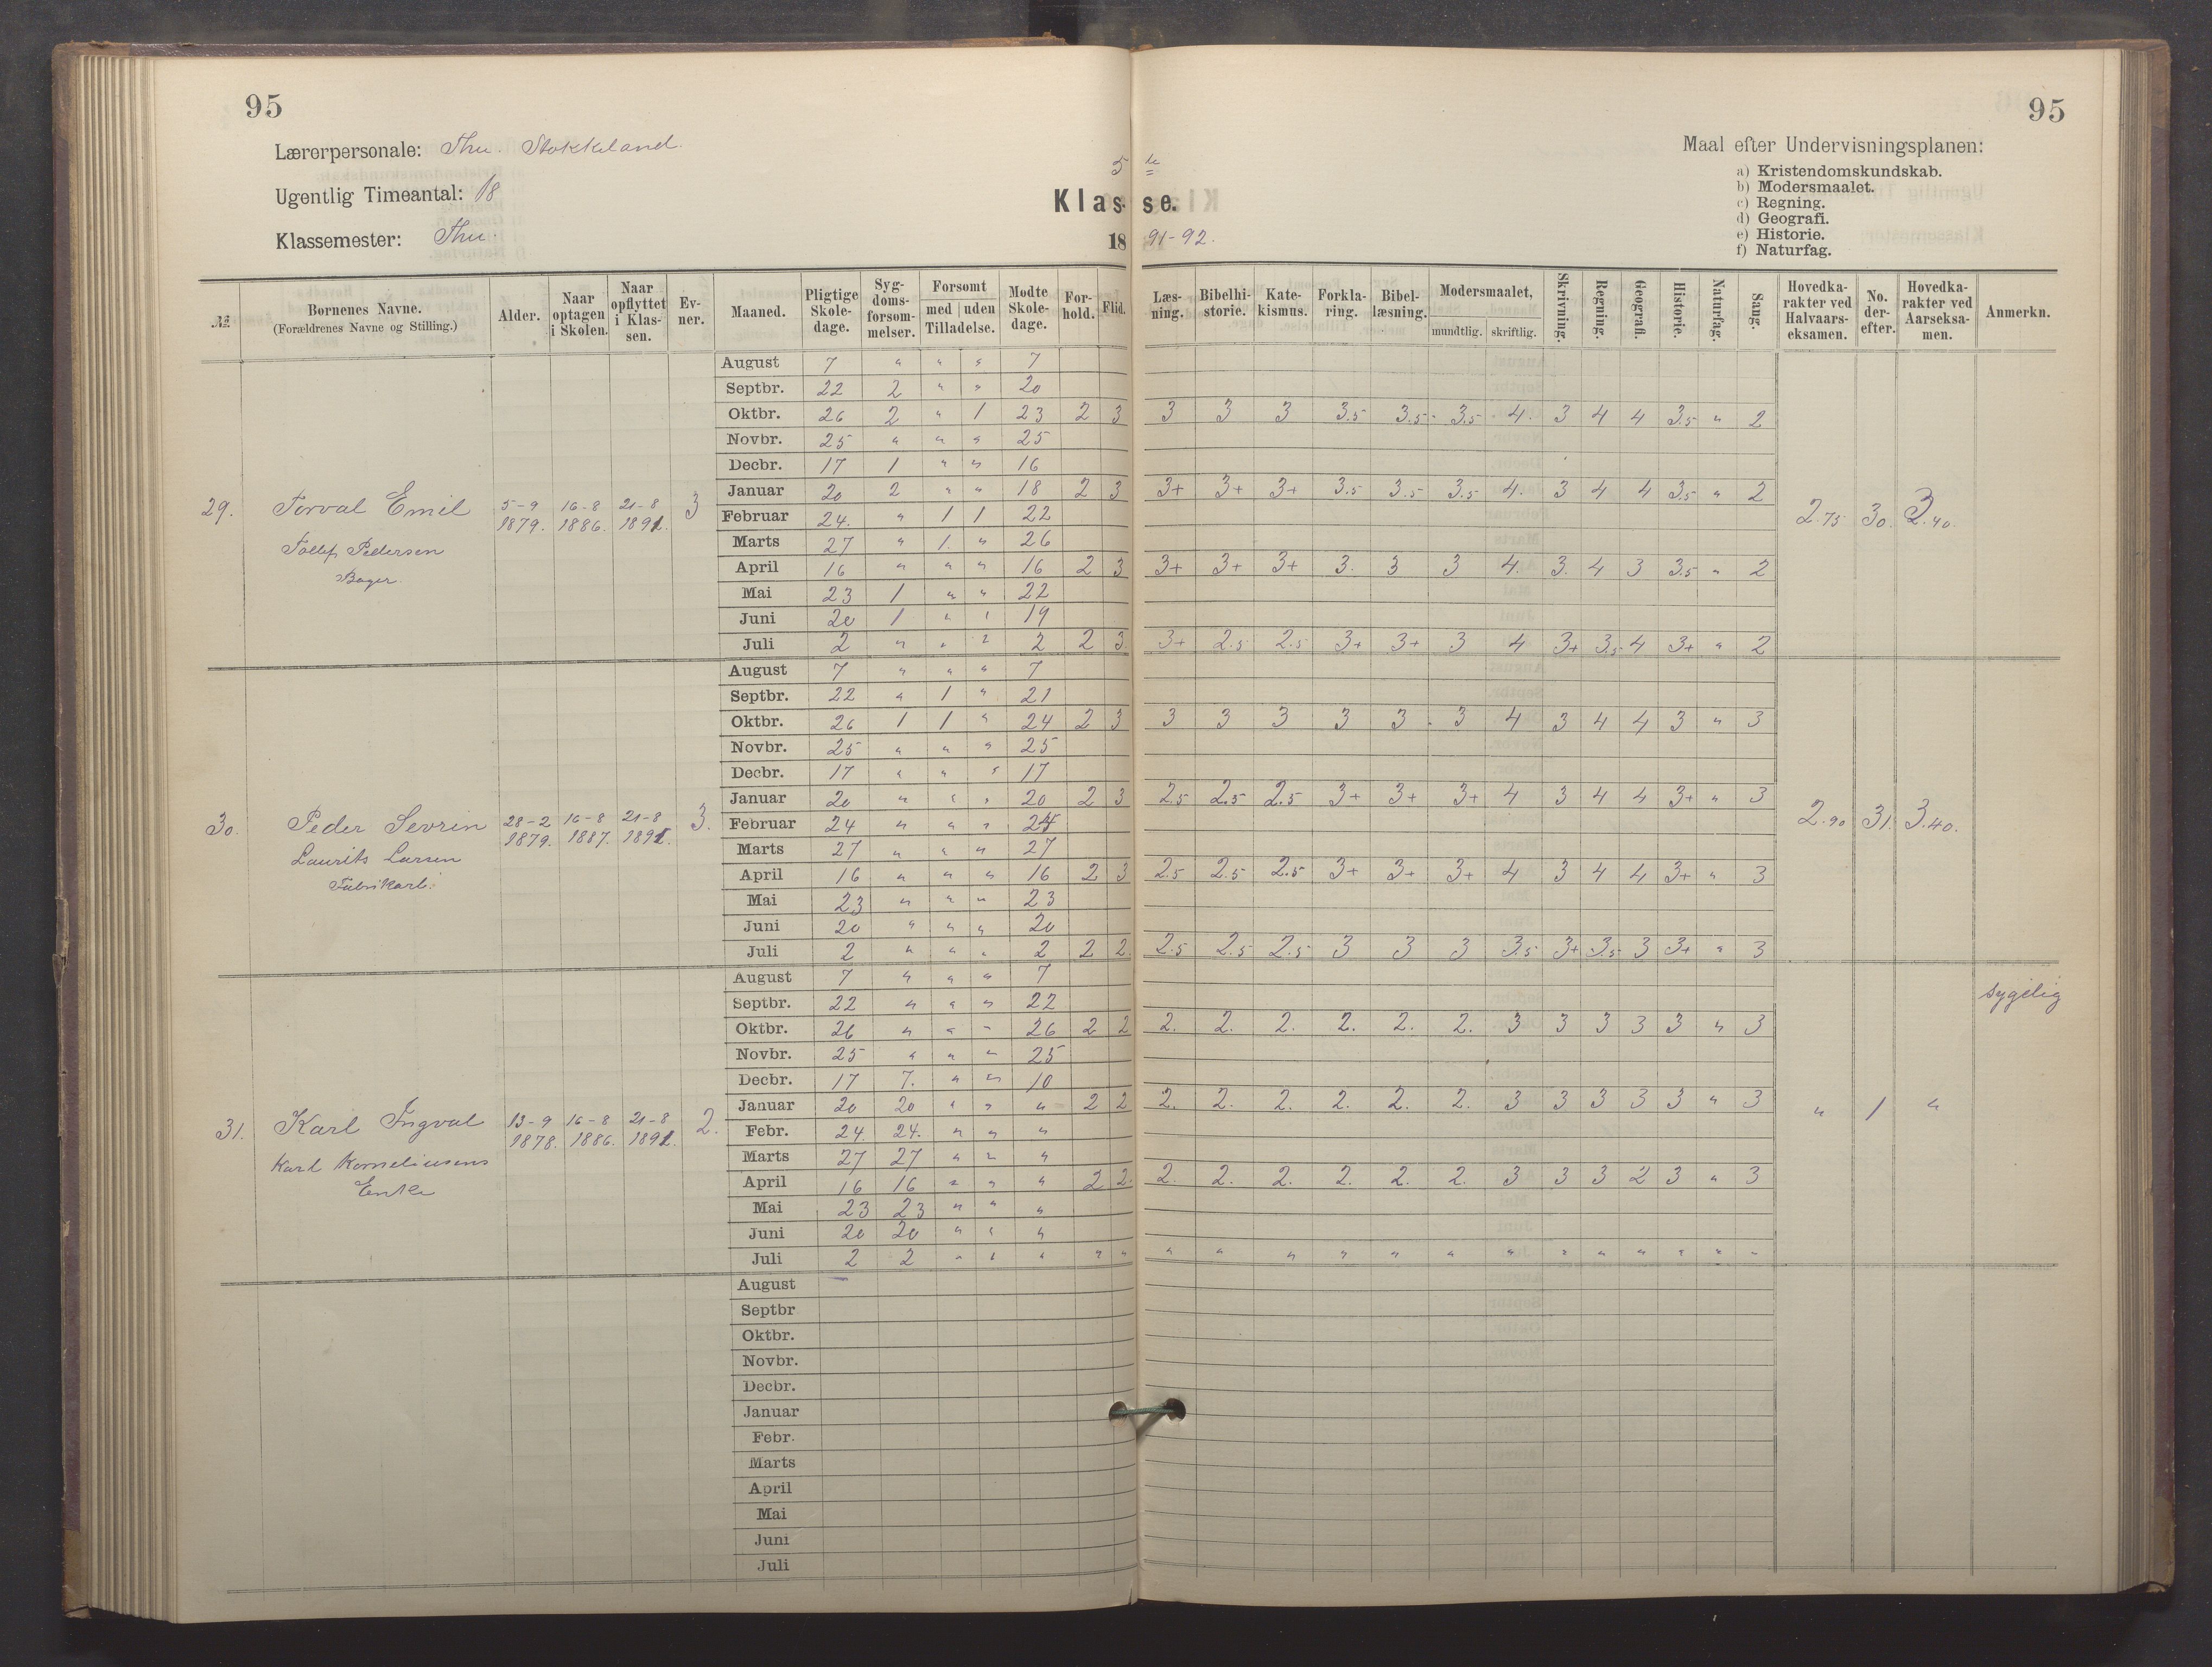 95
95
Lærerpersonale: Thu. Stokkeland.
Ugentlig Timeantal: 18
Klassemester: Thu.
5 te
Klasse.
1891-92.
Maal efter Undervisningsplanen:
a) Kristendomskundskab.
b) Modersmaalet.
c) Regning.
d) Geografi.
e) Historie.
f) Naturfag.
№ | Børnenes Navne. (Forældrenes Navne og Stilling.) | Alder. | Naar optagen i Skolen. | Naar opflyttet i Klassen. | Evner. | Maaned. | Pligtige Skoledage. | Sygdomsforsømmelser. | Forsømt med | uden Tilladelse. | Mødte Skoledage. | Forhold. | Flid. | Læsning. | Bibelhistorie. | Katekismus. | Forklaring. | Bibellæsning. | Modersmaalet, mundtlig. | skriftlig. | Skrivning. | Regning. | Geografi. | Historie. | Naturfag. | Sang. | Hovedkarakter ved Halvaarseksamen. | No. derefter. | Hovedkarakter ved Aarseksamen. | Anmerkn.
29. Torval Emil
Tollef Pedersen
Bager.
5-9 1879. 16-8 1886. 21-8 1891. 3
August 7 " " " 7
Septbr. 22 2 " " 20
Oktbr. 26 2 " 1 23 2 3 3 3 3 3.5 3.5 3.5 4. 3 4 4 3.5 " 2
Novbr. 25 " " " 25
Decbr. 17 1 " " 16
Januar 20 2 " " 18 2 3 3+ 3+ 3+ 3.5 3.5 3.5 4. 3 4 4 3.5 " 2
Februar 24. " 1 1 22
Marts 27 " 1. " 26
April 16 " " " 16 2 3 3+ 3+ 3+ 3. 3 3 4. 3. 4 3 3.5 " 2
Mai 23 1 " " 22
Juni 20 1 " " 19
Juli 2 " " " 2 2 3. 3+ 2.5 2.5 3+ 3+ 3 4 3+ 3.5 4 3+ " 2
2.75 30. 3.40.
30. Peder Sevrin
Laurits Larsen
Fabrikarb.
28-2 1879. 16-8 1887. 21-8 1891. 3.
August 7 " " " 7
Septbr. 22 " 1 " 21
Oktbr. 26 1 1 " 24 2 3 3 3 3 3 3 3 4 3 4 4 3 " 3
Novbr. 25 " " " 25
Decbr. 17 " " " 17
Januar 20 " " " 20 2 3 2.5 2.5 2.5 3+ 3+ 3+ 4 3 4 4 3+ " 3
Februar 24 " " " 24
Marts 27 " " " 27
April 16 " " " 16 2 3 2.5 2.5 2.5 3+ 3+ 3+ 4 3 4 4 3+ " 3
Mai 23 " " " 23
Juni 20 " " " 20
Juli 2 " " " 2 2 2. 2.5 2.5 2.5 3 3 3 3.5 3+ 3.5 3 3+ " 3
2.90 31. 3.40.
31. Karl Ingval
Karl Korneliusens
Enke
13-9 1878. 16-8 1886. 21-8 1891. 2.
August 7 " " " 7
Septbr. 22 " " " 22
Oktbr. 26 " " " 26 2 2 2. 2. 2. 2. 2. 2. 3 3 3 3 3 " 3
Novbr. 25 " " " 25
Decbr. 17 7. " " 10
Januar 20 20 " " " 2 2 2. 2. 2. 2. 2. 2. 3 3 3 3 3 " 3
Febr. 24. 24. " " "
Marts 27 27 " " "
April 16 16 " " " 2 2. 2. 2. 2. 2. 2. 2. 3 3 3 2 3 " 3
Mai 23 23 " " "
Juni 20 20 " " "
Juli 2 2 " " " " " " " " " " " " " " " " " "
" 1 " sygelig
August
Septbr
Oktbr.
Novbr.
Decbr.
Januar
Febr.
Marts
April
Mai
Juni
Juli